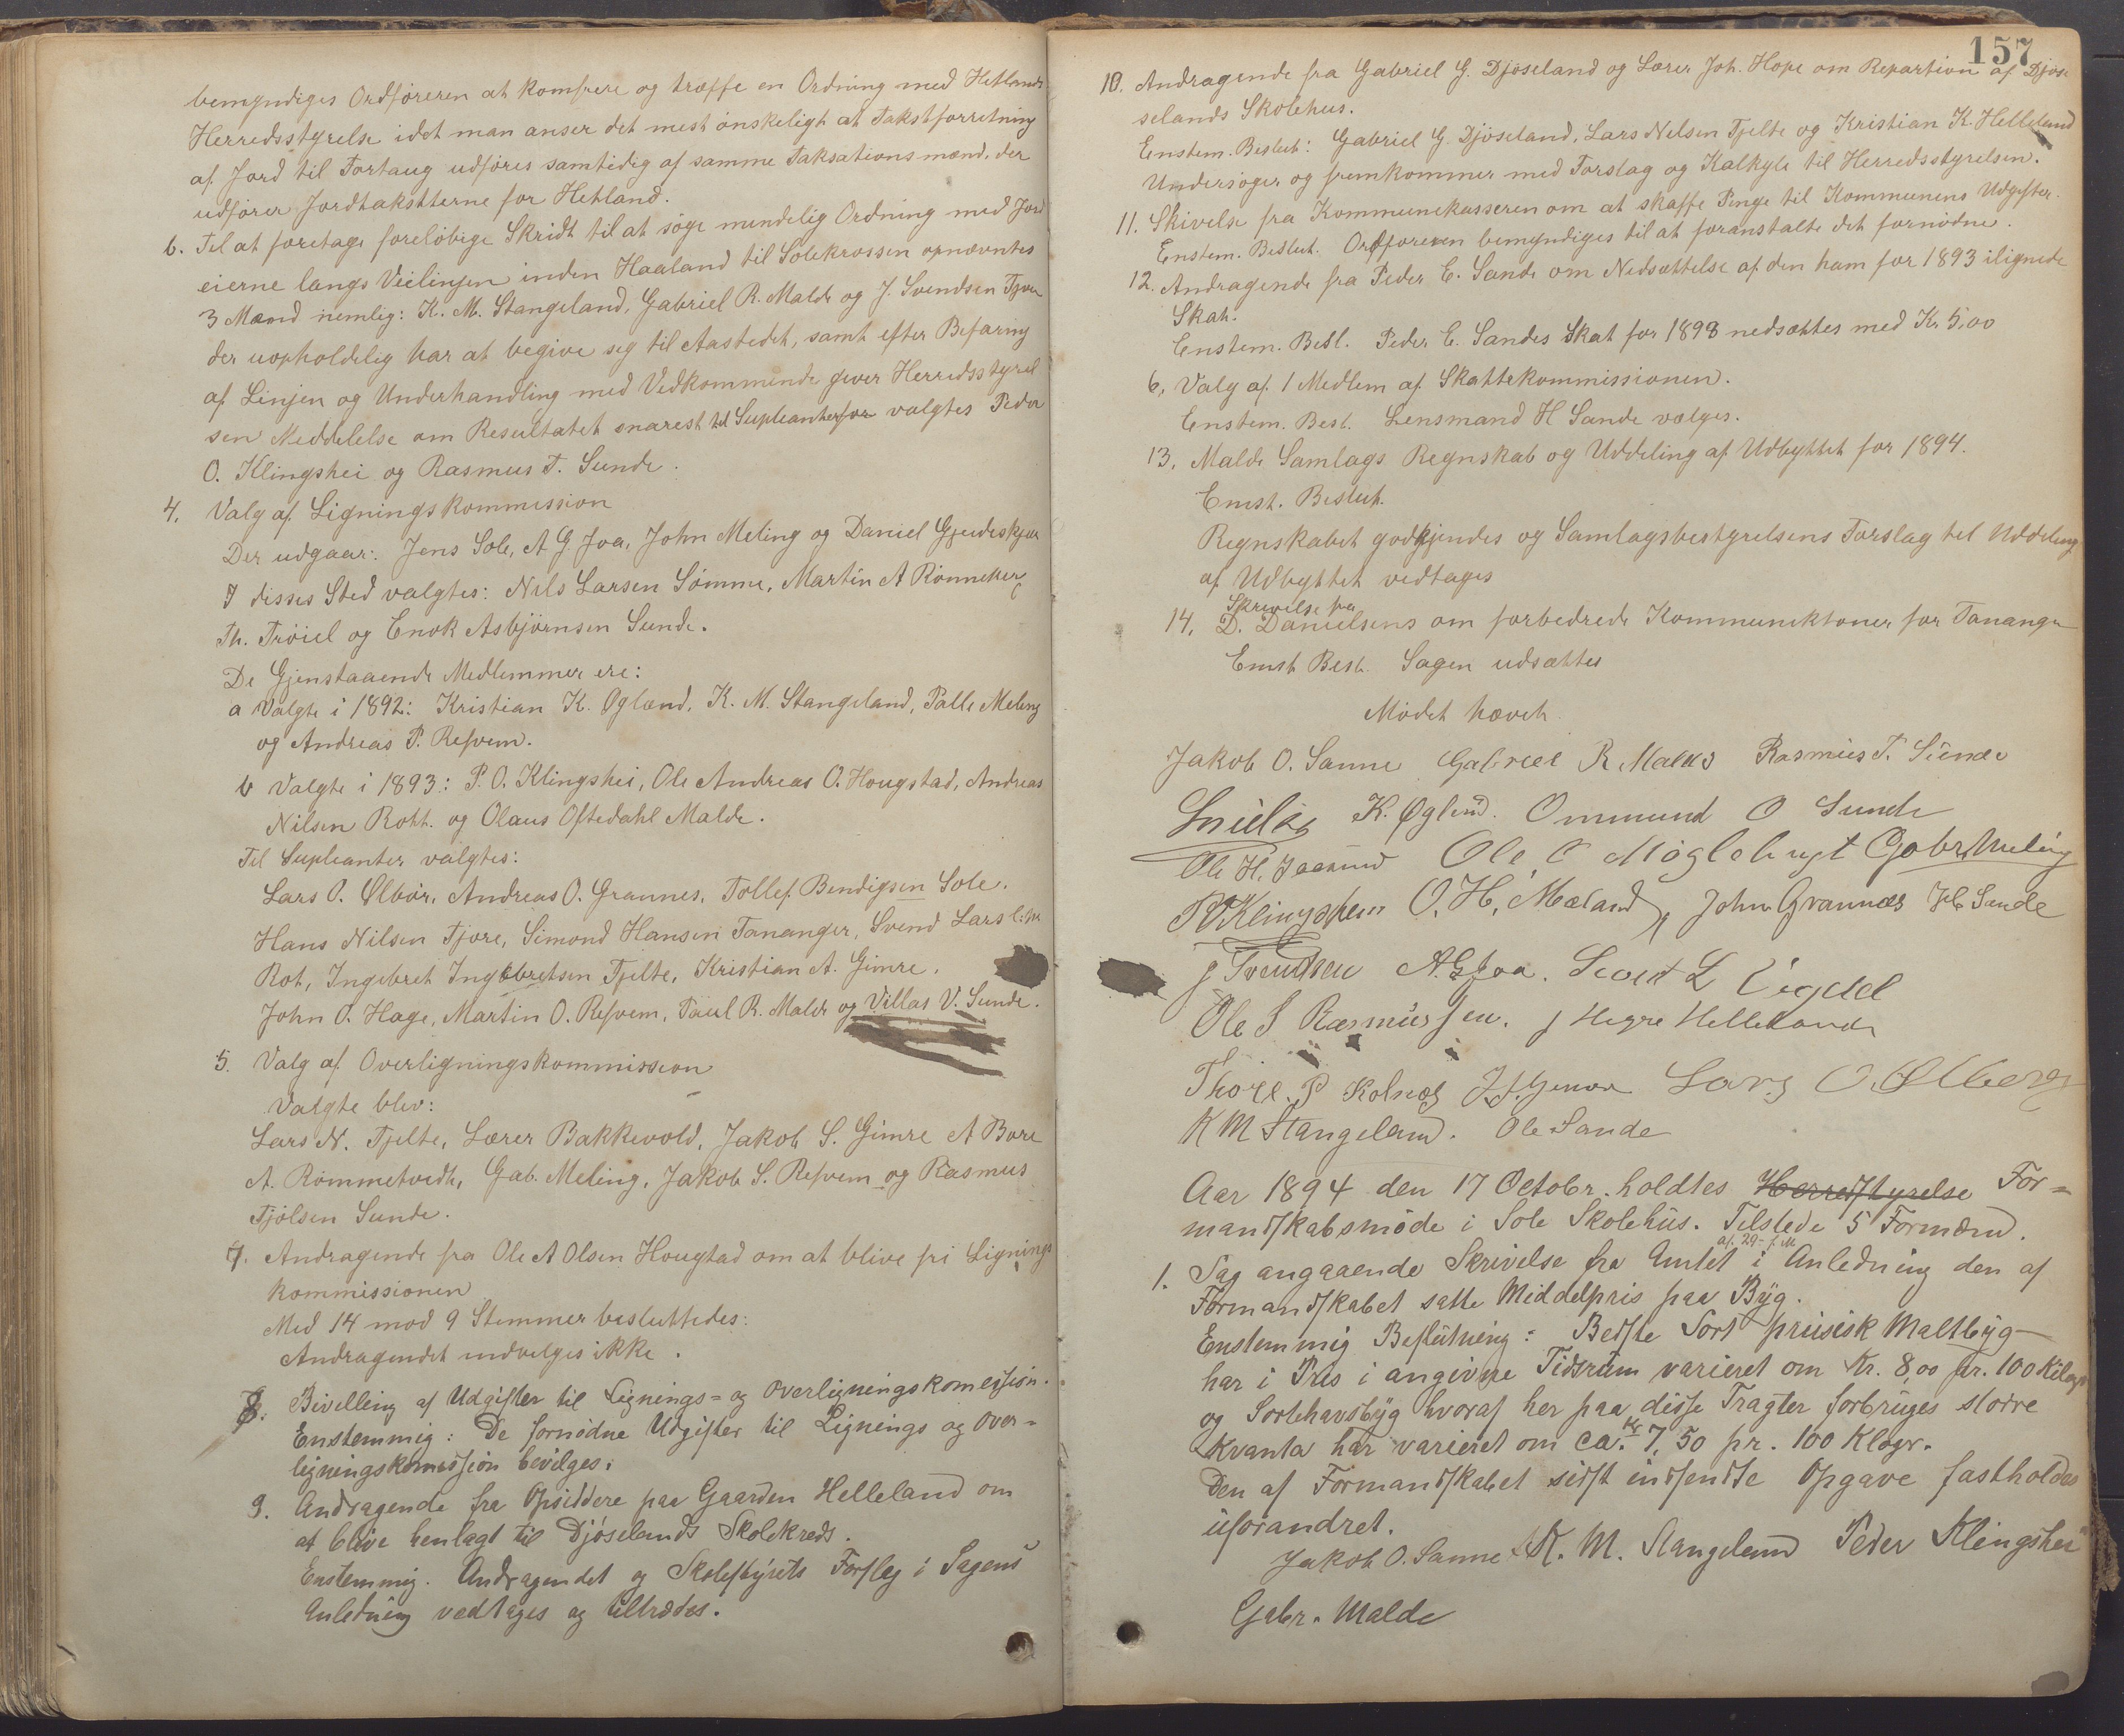 bemyndiges Ordføreren at komferere og træffe en Ordning med Hetlands
Herredsstyrelse idet man anser det mest ønskeligt at Takstforretning
af Jord til Fortaug udføres samtidig af samme Taksationsmænd, der
udfører Jordtaksterne for Hetland.
b. Til at foretage foreløbige Skridt til at søge mindelig Ordning med Jord
eierne langs Veilinjen inden Haaland til Solekrossen opnævntes
3 Mænd nemlig: K. M. Stangeland, Gabriel R. Malde og J. Svendsen Tjora
der uopholdelig har at begive seg til Aastedet, samt efter Befaring
af Linjen og Underhandling med Vedkommende giver Herredsstyrel
sen Meddelelse om Resultatet snarest til Supleanter for valgtes Peder
O. Klingshei og Rasmus T. Sunde.
4. Valg af Ligningskommission
Der udgaar: Jens Sole, A G. Joa, John Meling og Daniel Gjerdeskjær
I disses Sted valgtes: Nils Larsen Sømme, Martin A Rönneberg
Th. Trøiel og Enok Asbjørnsen Sunde.
De Gjenstaaende Medlemmer ere:
a Valgte i 1892: Kristian K. Ogland, K. M. Stangeland, Palle Meling
og Andreas P. Refvem.
b Valgte i 1893: P. O. Klingshei, Ole Andreas O. Hougstad, Andreas
Nilsen Rott. og Olaus Oftedahl Malde.
Til Supleanter valgtes:
Lars O. Ølbør, Andreas O. Grannes, Tollef Bendigsen Sole.
Hans Nilsen Tjore, Simond Hansen Tananger, Svend Larsen
Rot, Ingebret Ingebretsen Tjelte, Kristian A. Gimre,
John O. Hage, Martin O. Refvem, Paul R. Malde og Villas V. Sunde.
5. Valg af Overligningskommission
Valgte blev:
Lars N. Tjelte, Lærer Bakkevold, Jakob S. Gimre A Bore
A. Rommetvedt, Gab. Meling, Jakob S. Refvem og Rasmus
Tjølsen Sunde.
7. Andragende fra Ole A Olsen Hougtad om at blive fri Lignings
kommissionen
Med 14 mod 9 Stemmer besluttedes:
Andragendet indvelges ikke.
8. Bivelling af Udgifter til Lignings= og Overligningskomission.
Enstemmig: De fornødne Udgifter til Lignings og Over=
ligningskomission bevilges.
9. Andragende fra Opsiddere paa Gaarden Helleland om
at blive henlagt til Djøselands Skolekreds.
Enstemmig. Andragendet og Skolestyrets Forslag i Sagens
Anledning vedtages og tiltrædes.
157
10. Andragende fra Gabriel G. Djøseland og Lærer Joh. Hope om Repartion af Djøse
selands Skolehus.
Enstem. Beslut: Gabriel G. Djøseland, Lars Nelsen Tjelte og Kristian K. Helleland
Undersøger og fremkommer med Forslag og Kalkyle til Herredsstyrelsen.
11. Skivelse fra Kommunekasseren om at skaffe Penge til Kommunens Udgifter.
Enstem. Beslut. Ordføreren bemyndiges til at foranstalte det fornødne.
12. Andragende fra Peder E. Sande om Nedsættelse af den ham for 1893 ilignede
Skat.
Enstem. Besl. Peder E. Sandes Skat for 1893 nedsættes med Kr 5,00
6, Valg af 1 Medlem af Skattekommissionen.
Enstem. Besl. Lensmand H Sande vælges.
13. Malde Samlags Regnskab og Uddeling af Udbyttet for 1894.
Emst. Beslut.
Regnskabet godkjendes og Samlagsbestyrelsens Forslag til Uddeling
af Udbyttet vedtages
Skrivelse fra
14. D. Danielsens om forbedrede Kommuniktoner for Tananger
Emst Besl. Sagen udsættes
Mødet hævet.
Jakob O. Sanne Gabriel R. Malde Rasmus T. Sunde
K. Øglend. Ommund O Sunde
Ole H. Jaasund Ole O Møglebust Gabr. Meling
P O Klingshem O. H. Mæland, John Grannæs H Sande
J Svendsen A. G Joa. Svend L Vigdel
Ole S Rasmussen. J Hegre Helleland
Thore P Kolnes J. S. Gimre Lars O. Ølberg
K M Stangeland. Ole Sande
Aar 1894 den 17 Octobr. holdtes Herredstyrelse For=
mandskabsmøde i Sole Skolehus. Tilstede 5 Formænd.
af 29- f. M
1. Sag angaaende Skrivelse fra Amtet i Anledning den af
Formandskabet satte Middelpris paa Byg.
Enstemmig Beslutning: Bedste Sort priisisk Maltbyg
har i Pris i angivne Tidsrum varieret om Kr. 8,00 pr. 100 Kilogr
og Sortehavsbyg hvoraf her paa disse Tragter forbruges større
Kvanta har varieret om ca. Kr 7,50 pr. 100 Klogr.
Den af Formandskabet sidst indsendte Opgave fastholdes
uforandret.
Jakob O. Sanne K. M. Stangeland Peder Klingshei
Gabr. Malde